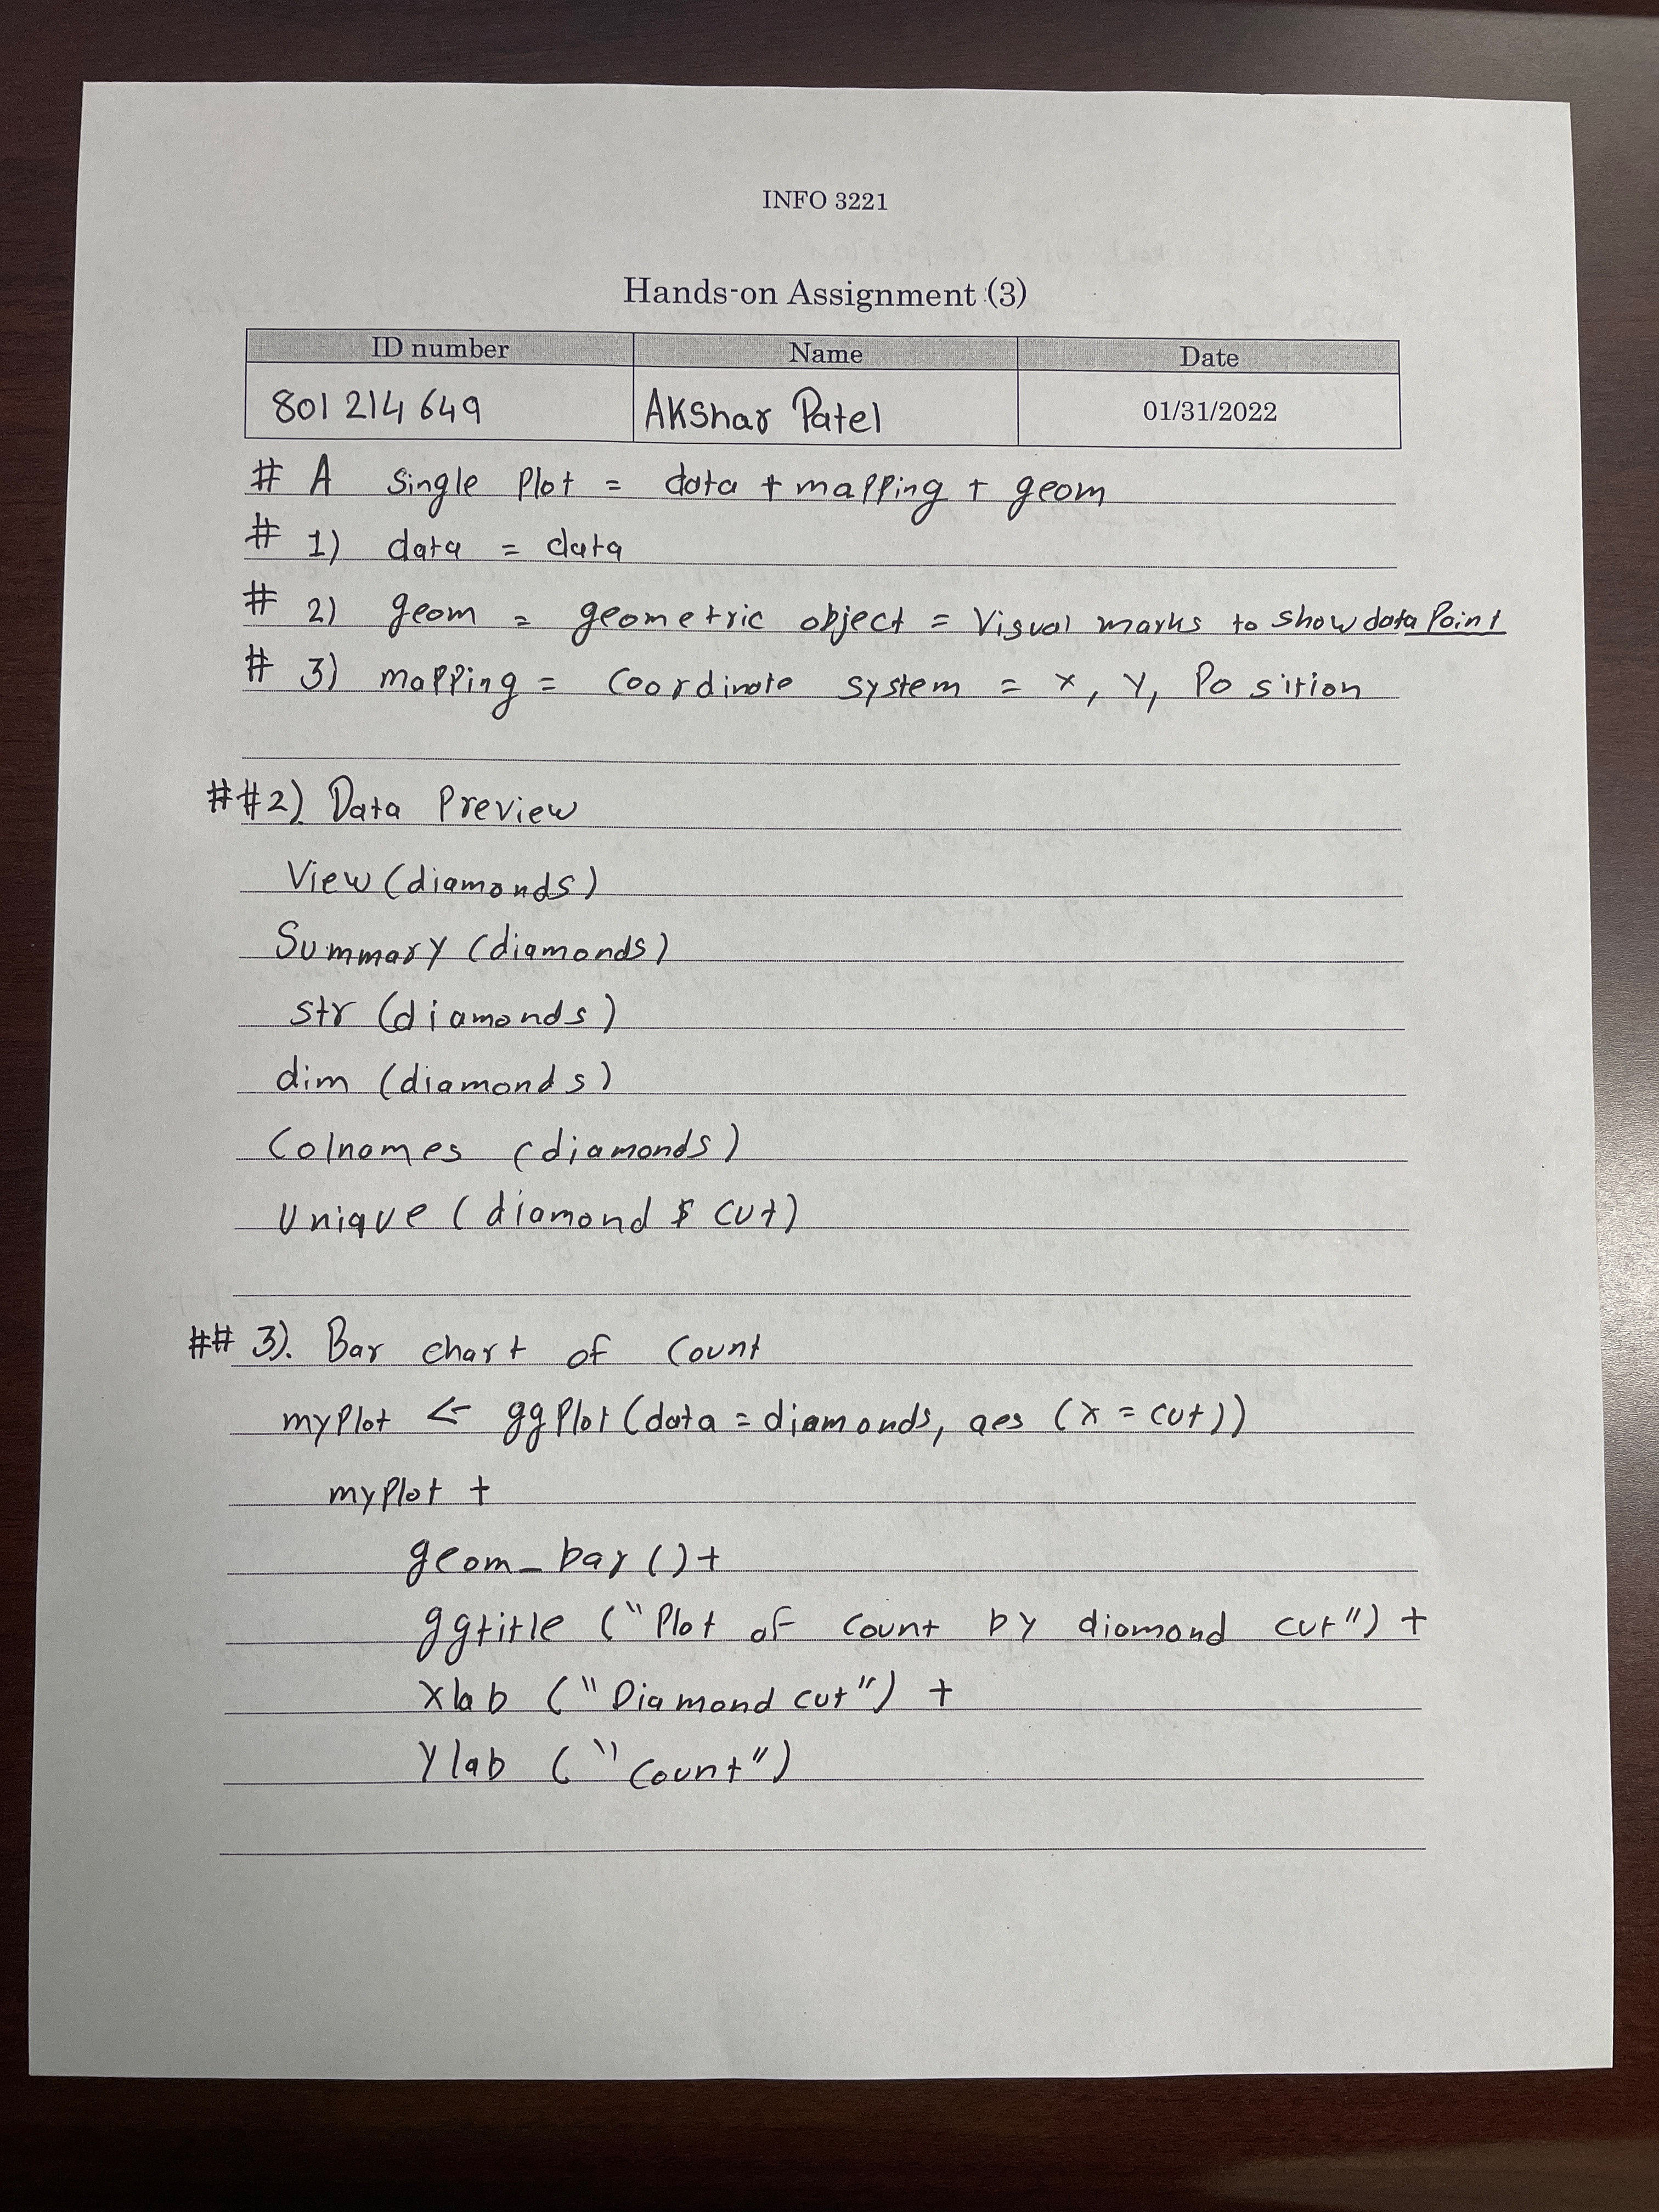 INFO 3221
Hands-on Assignment (3)
ID number Name Date
801 214 649 Akshar Patel 01/31/2022
# A single Plot = data + mapping + geom
# 1) data = data
# 2) geom = geometric object = Visual marks to show data Point
# 3) mapping = Coordinate system = x, y, Position
##2). Data Preview
View (diamonds)
Summary (diamonds)
str (diamonds)
dim (diamonds)
Colnames (diamonds)
Unique (diamond $ cut)
## 3). Bar chart of Count
myPlot <- ggPlot (data = diamonds, aes (x = cut))
myPlot +
geom_bar () +
ggtitle ("Plot of Count by diamond cut") +
Xlab ("Diamond cut") +
Ylab ("Count")